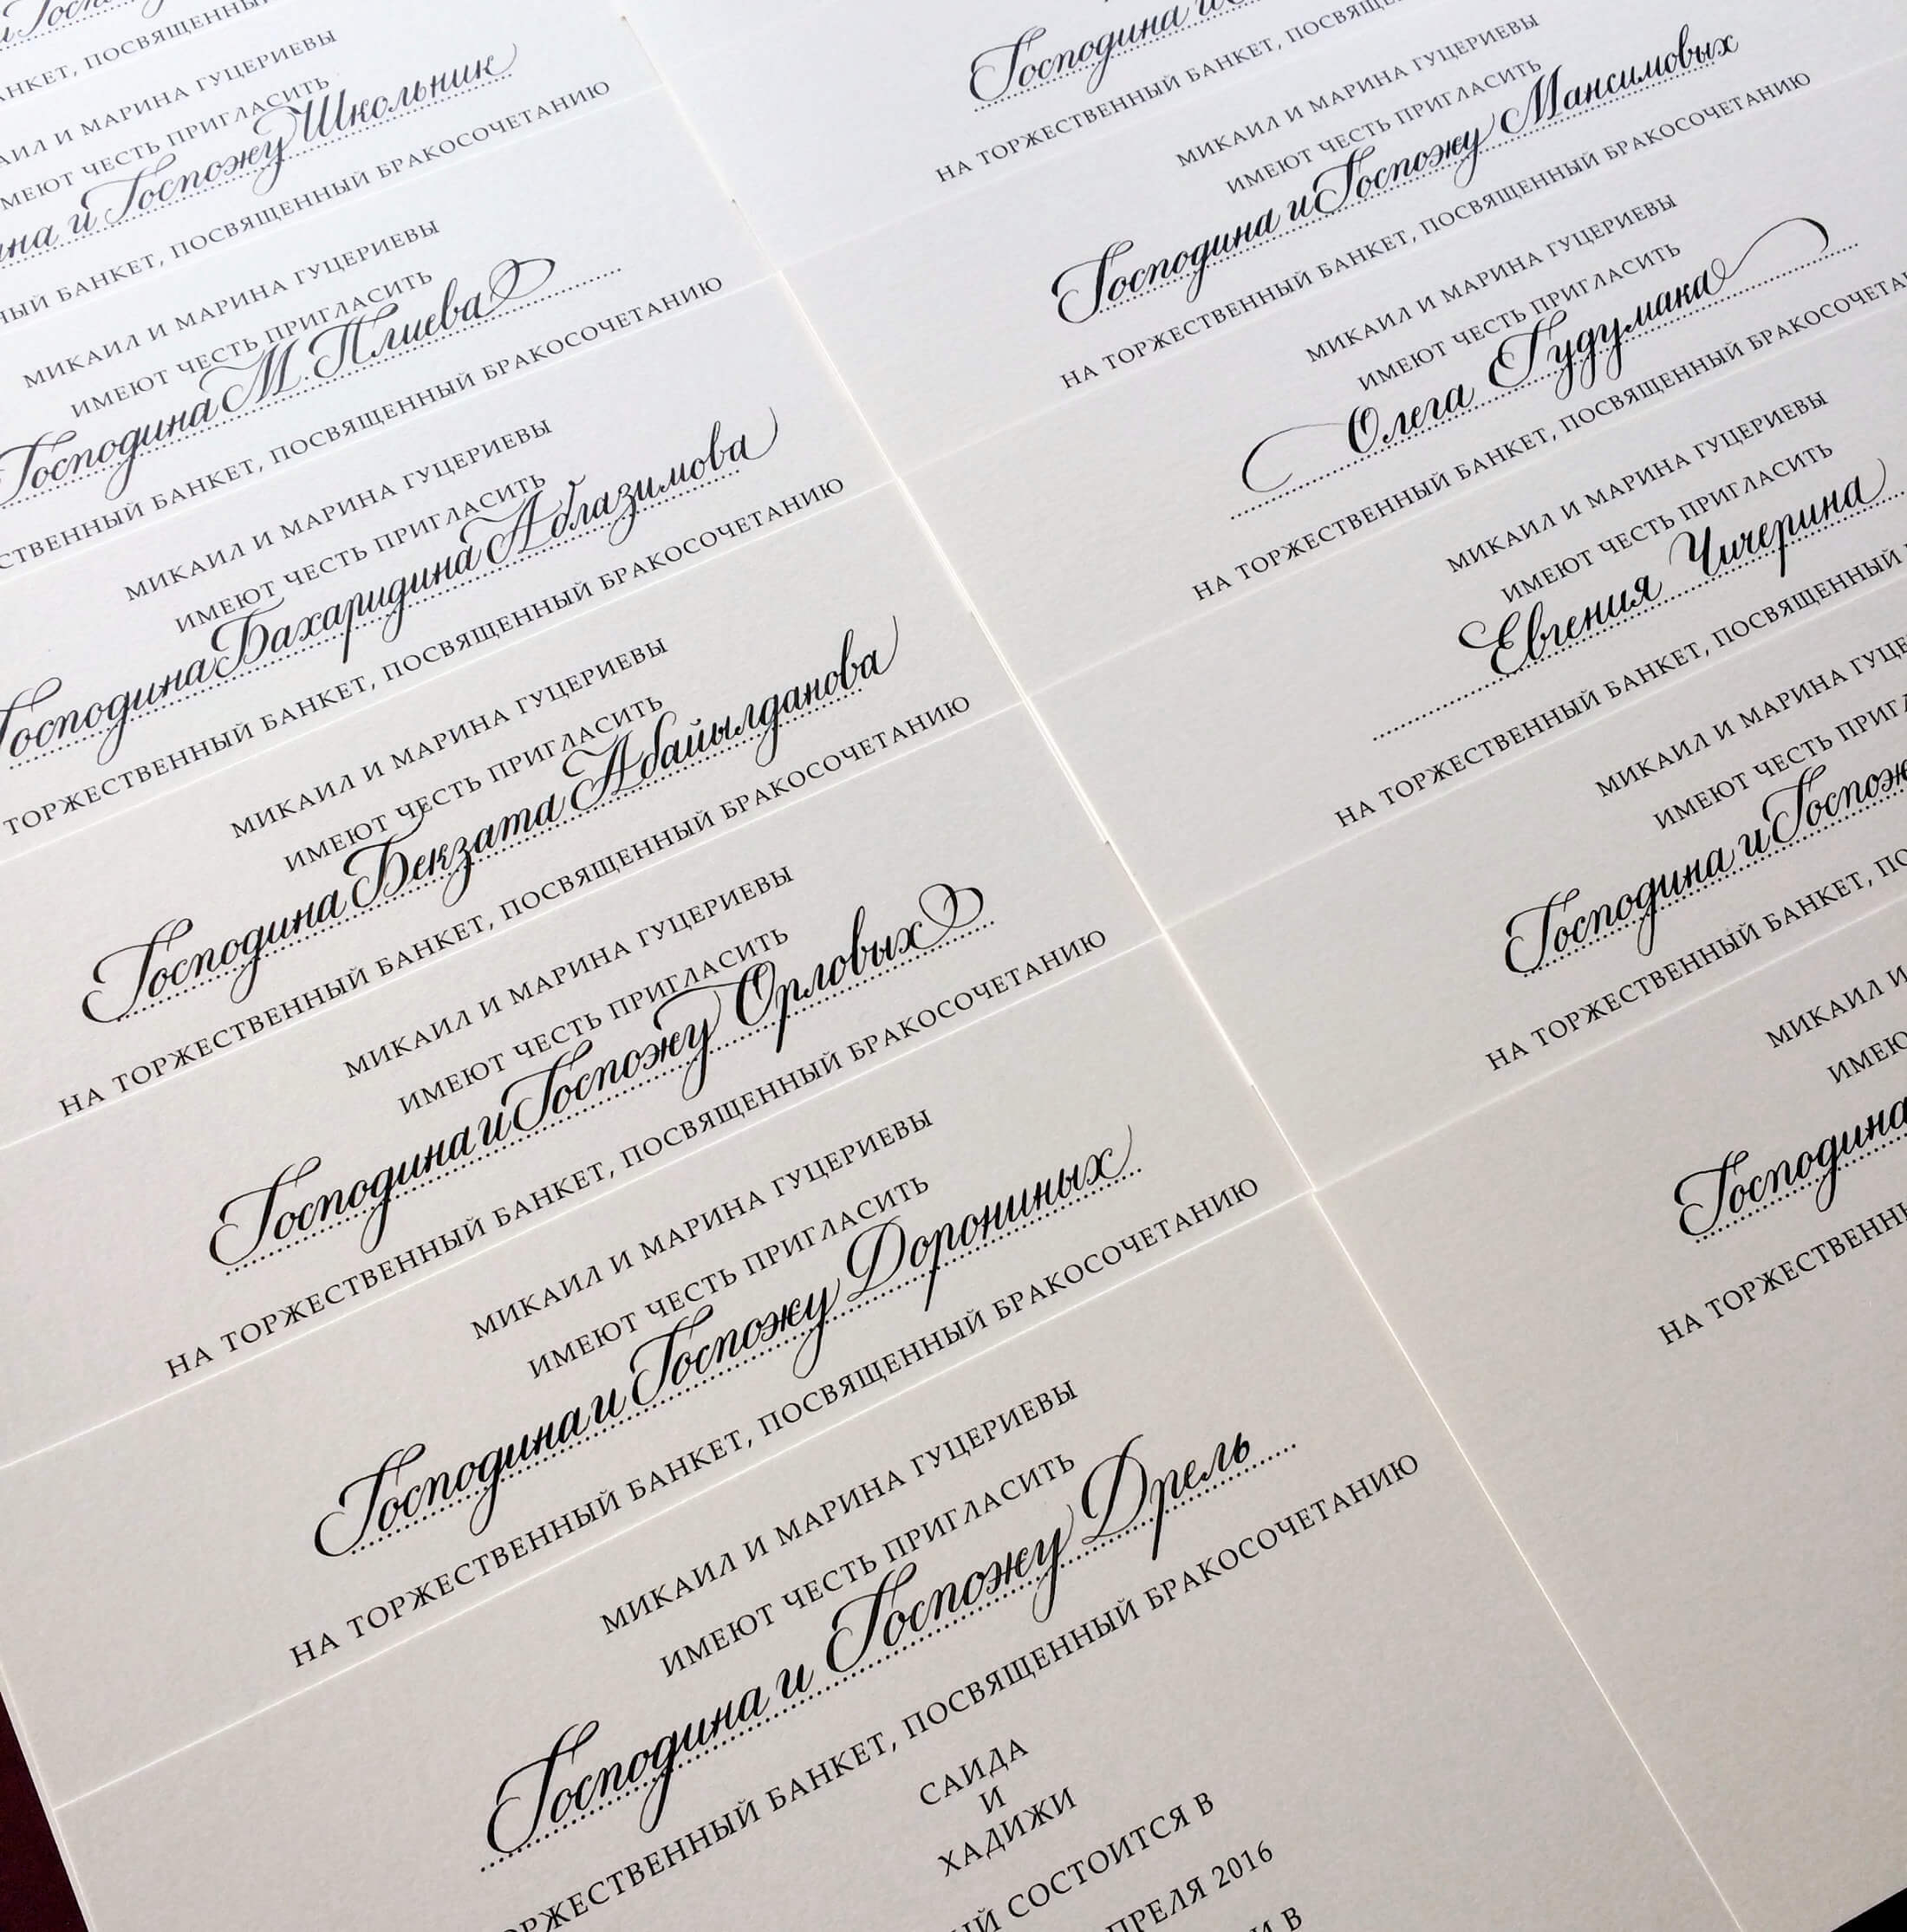 БАНКЕТ, ПОСВЯЩЕННЫЙ
МИКАИЛ И МАРИНА ГУЦЕРИЕВЫ
ИМЕЮТ ЧЕСТЬ ПРИГЛАСИТЬ
и Госпожу Школьник
БАНКЕТ, ПОСВЯЩЕННЫЙ БРАКОСОЧЕТАНИЮ
МИКАИЛ И МАРИНА ГУЦЕРИЕВЫ
ИМЕЮТ ЧЕСТЬ ПРИГЛАСИТЬ
Господина М. Плиева
БАНКЕТ, ПОСВЯЩЕННЫЙ БРАКОСОЧЕТАНИЮ
МИКАИЛ И МАРИНА ГУЦЕРИЕВЫ
ИМЕЮТ ЧЕСТЬ ПРИГЛАСИТЬ
Господина Бахаридина Аблазимова
ТОРЖЕСТВЕННЫЙ БАНКЕТ, ПОСВЯЩЕННЫЙ БРАКОСОЧЕТАНИЮ
МИКАИЛ И МАРИНА ГУЦЕРИЕВЫ
ИМЕЮТ ЧЕСТЬ ПРИГЛАСИТЬ
Господина Бекзата Абайылданова
НА ТОРЖЕСТВЕННЫЙ БАНКЕТ, ПОСВЯЩЕННЫЙ БРАКОСОЧЕТАНИЮ
МИКАИЛ И МАРИНА ГУЦЕРИЕВЫ
ИМЕЮТ ЧЕСТЬ ПРИГЛАСИТЬ
Господина и Госпожу Орловых
НА ТОРЖЕСТВЕННЫЙ БАНКЕТ, ПОСВЯЩЕННЫЙ БРАКОСОЧЕТАНИЮ
МИКАИЛ И МАРИНА ГУЦЕРИЕВЫ
ИМЕЮТ ЧЕСТЬ ПРИГЛАСИТЬ
Господина и Госпожу Дорониных
НА ТОРЖЕСТВЕННЫЙ БАНКЕТ, ПОСВЯЩЕННЫЙ БРАКОСОЧЕТАНИЮ
МИКАИЛ И МАРИНА ГУЦЕРИЕВЫ
ИМЕЮТ ЧЕСТЬ ПРИГЛАСИТЬ
Господина и Госпожу Дрель
БАНКЕТ, ПОСВЯЩЕННЫЙ БРАКОСОЧЕТАНИЮ
САИДА
И
ХАДИЖИ
СОСТОИТСЯ В
2016
В
Господина
НА ТОРЖЕСТВЕННЫЙ БАНКЕТ,
МИКАИЛ И МАРИНА ГУЦЕРИЕВЫ
ИМЕЮТ ЧЕСТЬ ПРИГЛАСИТЬ
Господина и Госпожу Максимовых
НА ТОРЖЕСТВЕННЫЙ БАНКЕТ, ПОСВЯЩЕННЫЙ БРАКОСОЧЕТАНИЮ
МИКАИЛ И МАРИНА ГУЦЕРИЕВЫ
ИМЕЮТ ЧЕСТЬ ПРИГЛАСИТЬ
Олега Гудумака
НА ТОРЖЕСТВЕННЫЙ БАНКЕТ, ПОСВЯЩЕННЫЙ
МИКАИЛ И МАРИНА ГУЦЕРИЕВЫ
ИМЕЮТ ЧЕСТЬ ПРИГЛАСИТЬ
Евгения Чичерина
НА ТОРЖЕСТВЕННЫЙ БАНКЕТ, ПОСВЯЩЕННЫЙ
МИКАИЛ И МАРИНА
ИМЕЮТ ЧЕСТЬ
Господина и
НА ТОРЖЕСТВЕННЫЙ БАНКЕТ,
МИКАИЛ И
Господина
НА